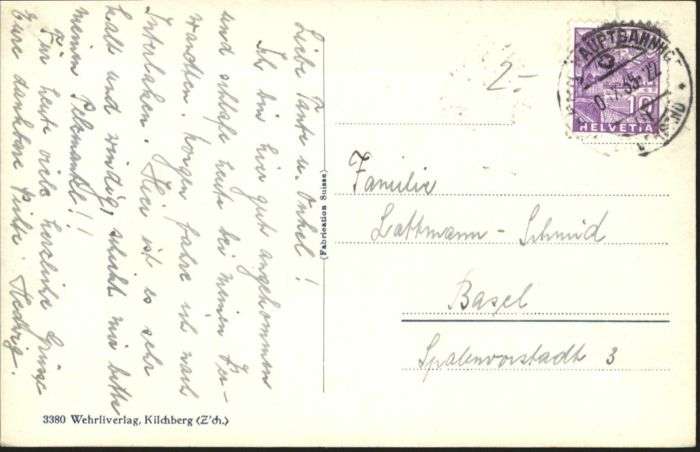 Liebe Tante u. Onkel!
Ich bin hier gut angekommen
und schlafe heute bei meinen Ver-
wandten, morgen fahre ich nach
Interlaken. Hier ist es sehr
kalt und windig, schickt mir bitte
meinen Pelzmantel!!
Für heute viele herzliche Grüsse
Eure dankbare Hedwig.
(Fabrication Suisse)
2.-
HAUPTBAHNHOF
HELVETIA
10
Familie
Lattmann-Schmid
Basel
Spalenvorstadt 3
3380 Wehrliverlag, Kilchberg (Z'ch.)